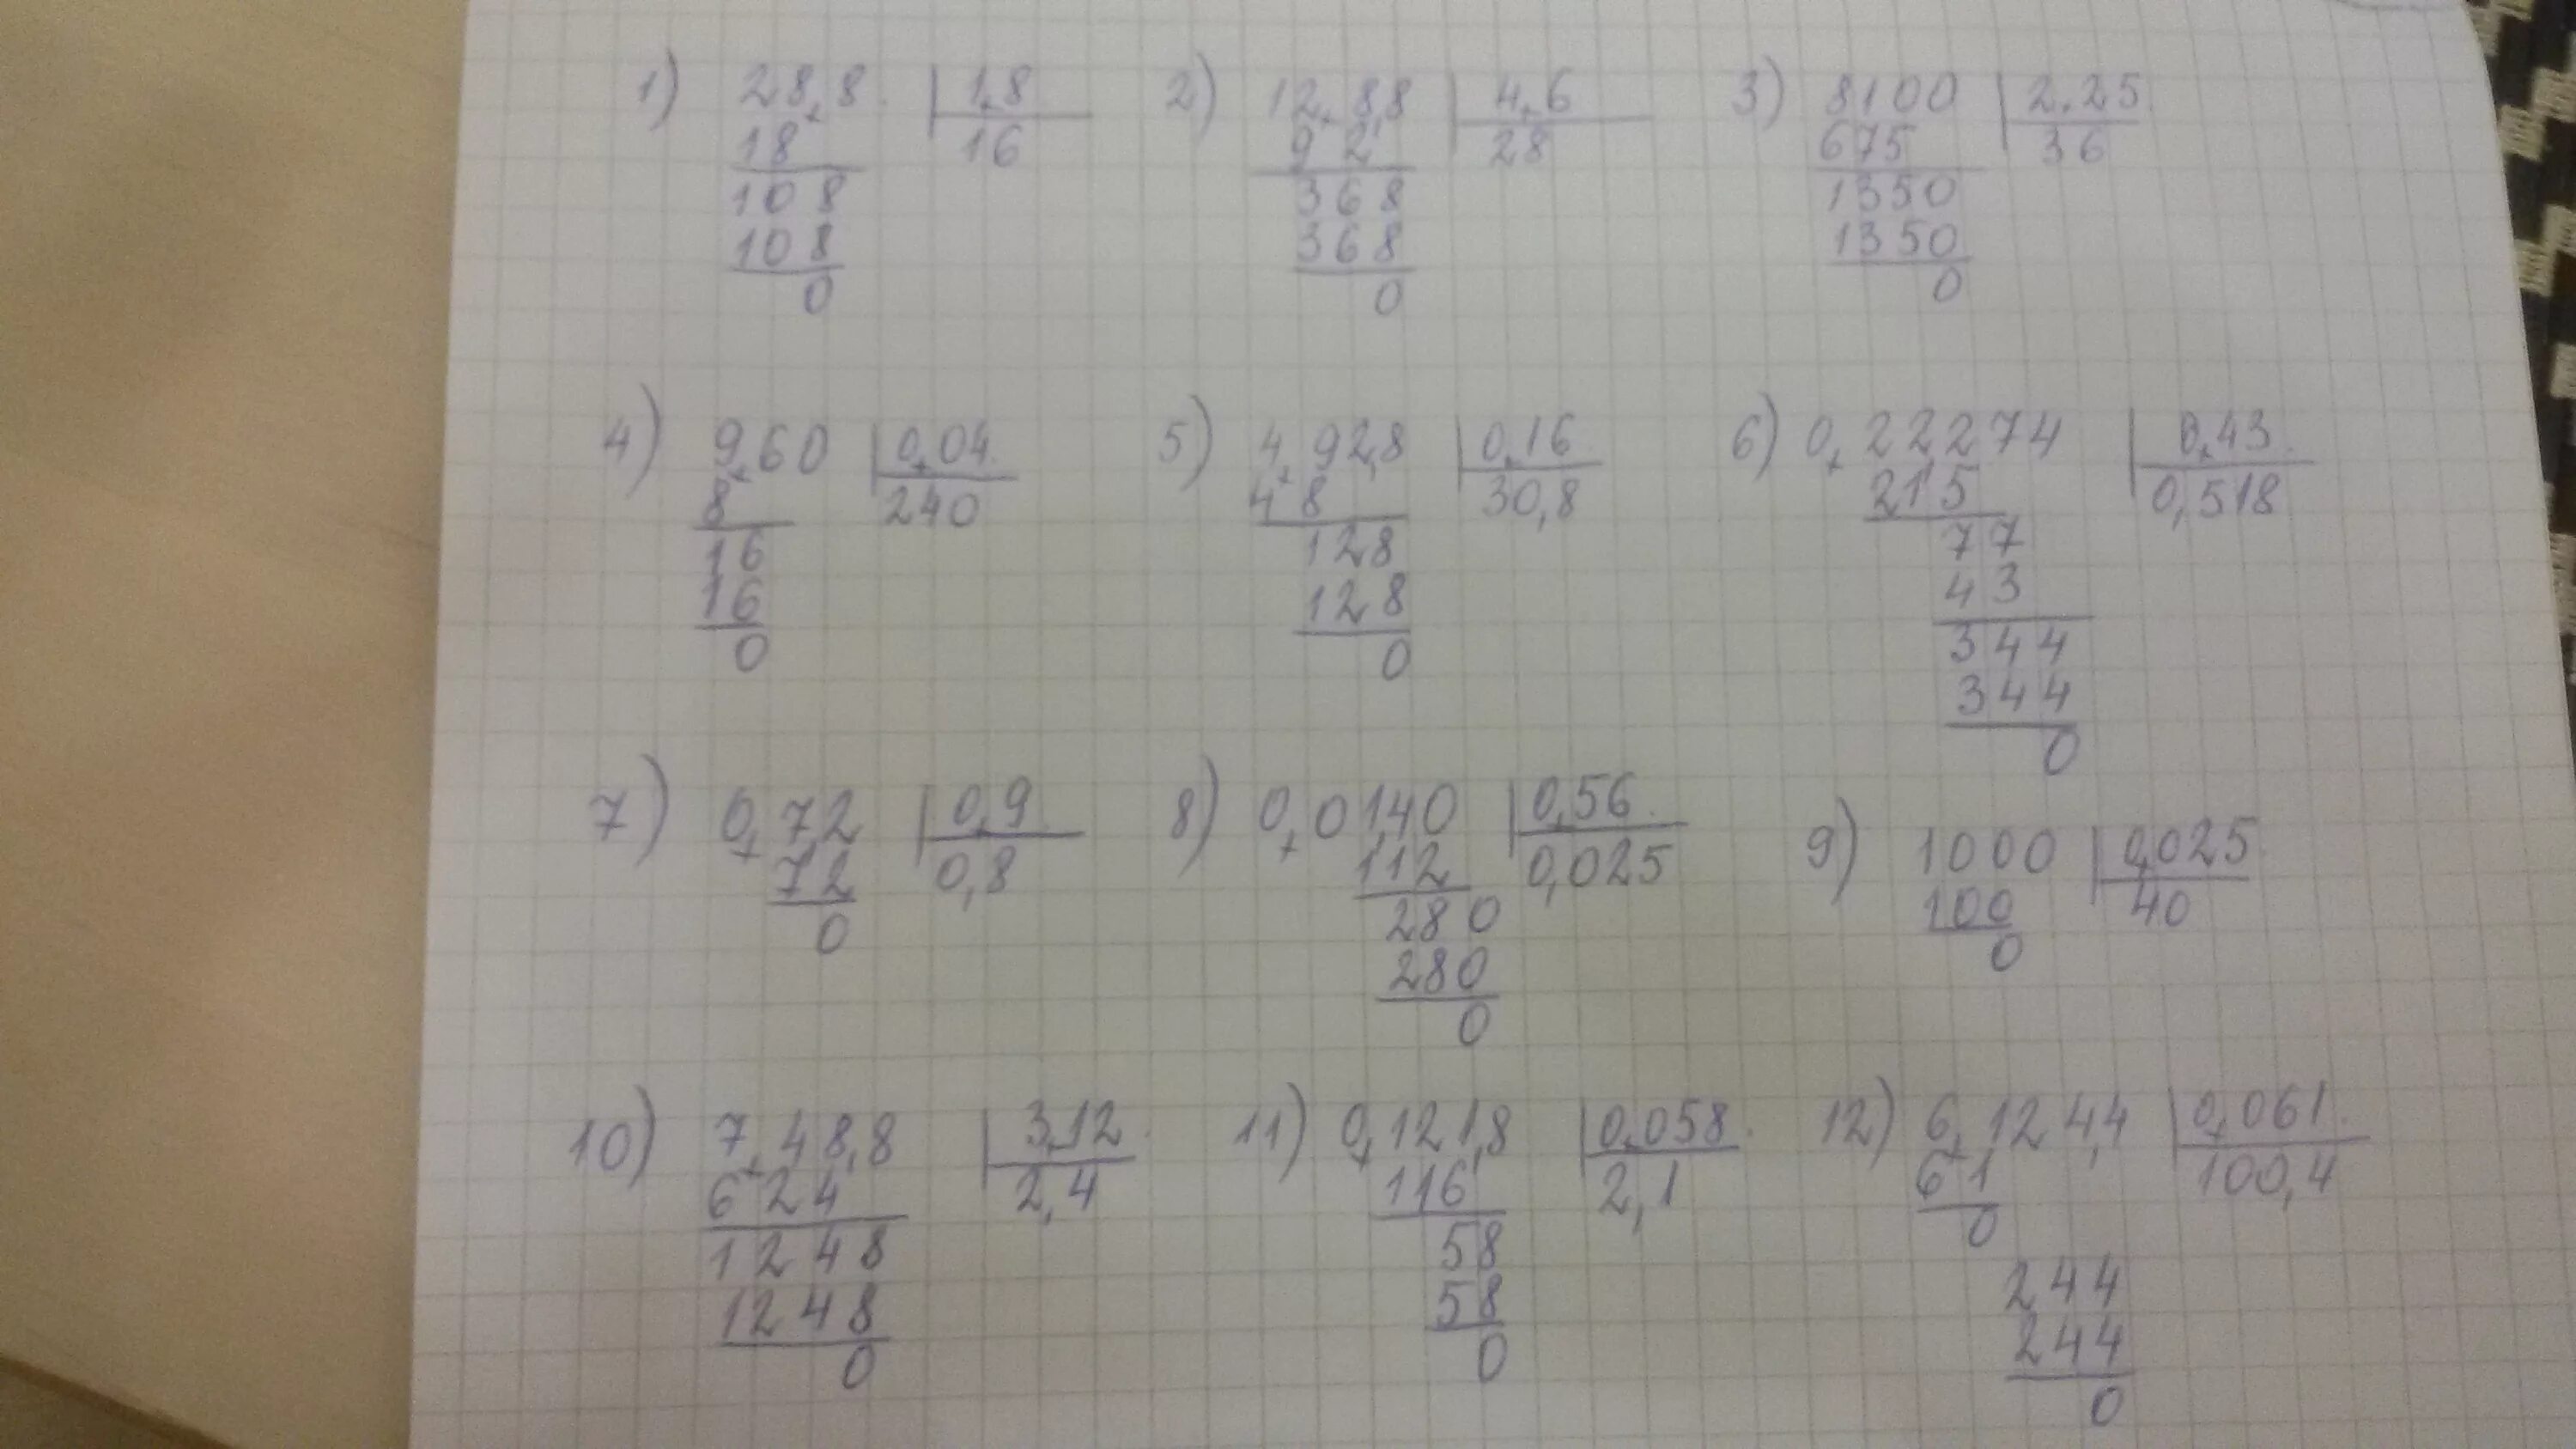 1) 28,8 | 1,8 2) 12,88 | 4,6 3) 8100 | 2,25
18 16 9 2 28 675 36
108 368 1350
108 368 1350
0 0 0
4) 9,60 | 0,04 5) 4,92,8 | 0,16 6) 0,22274 | 0,43
8 240 4 8 30,8 215 0,518
16 128 77
16 128 43
0 0 344
344
0
7) 0,72 | 0,9 8) 0,0140 | 0,56 9) 1000 | 0,025
72 0,8 112 0,025 100 40
0 280 0
280
0
10) 7,48,8 | 3,12 11) 0,121,8 | 0,058 12) 6,124,4 | 0,061
624 2,4 116 2,1 61 100,4
1248 58 0
1248 58 244
0 0 244
0